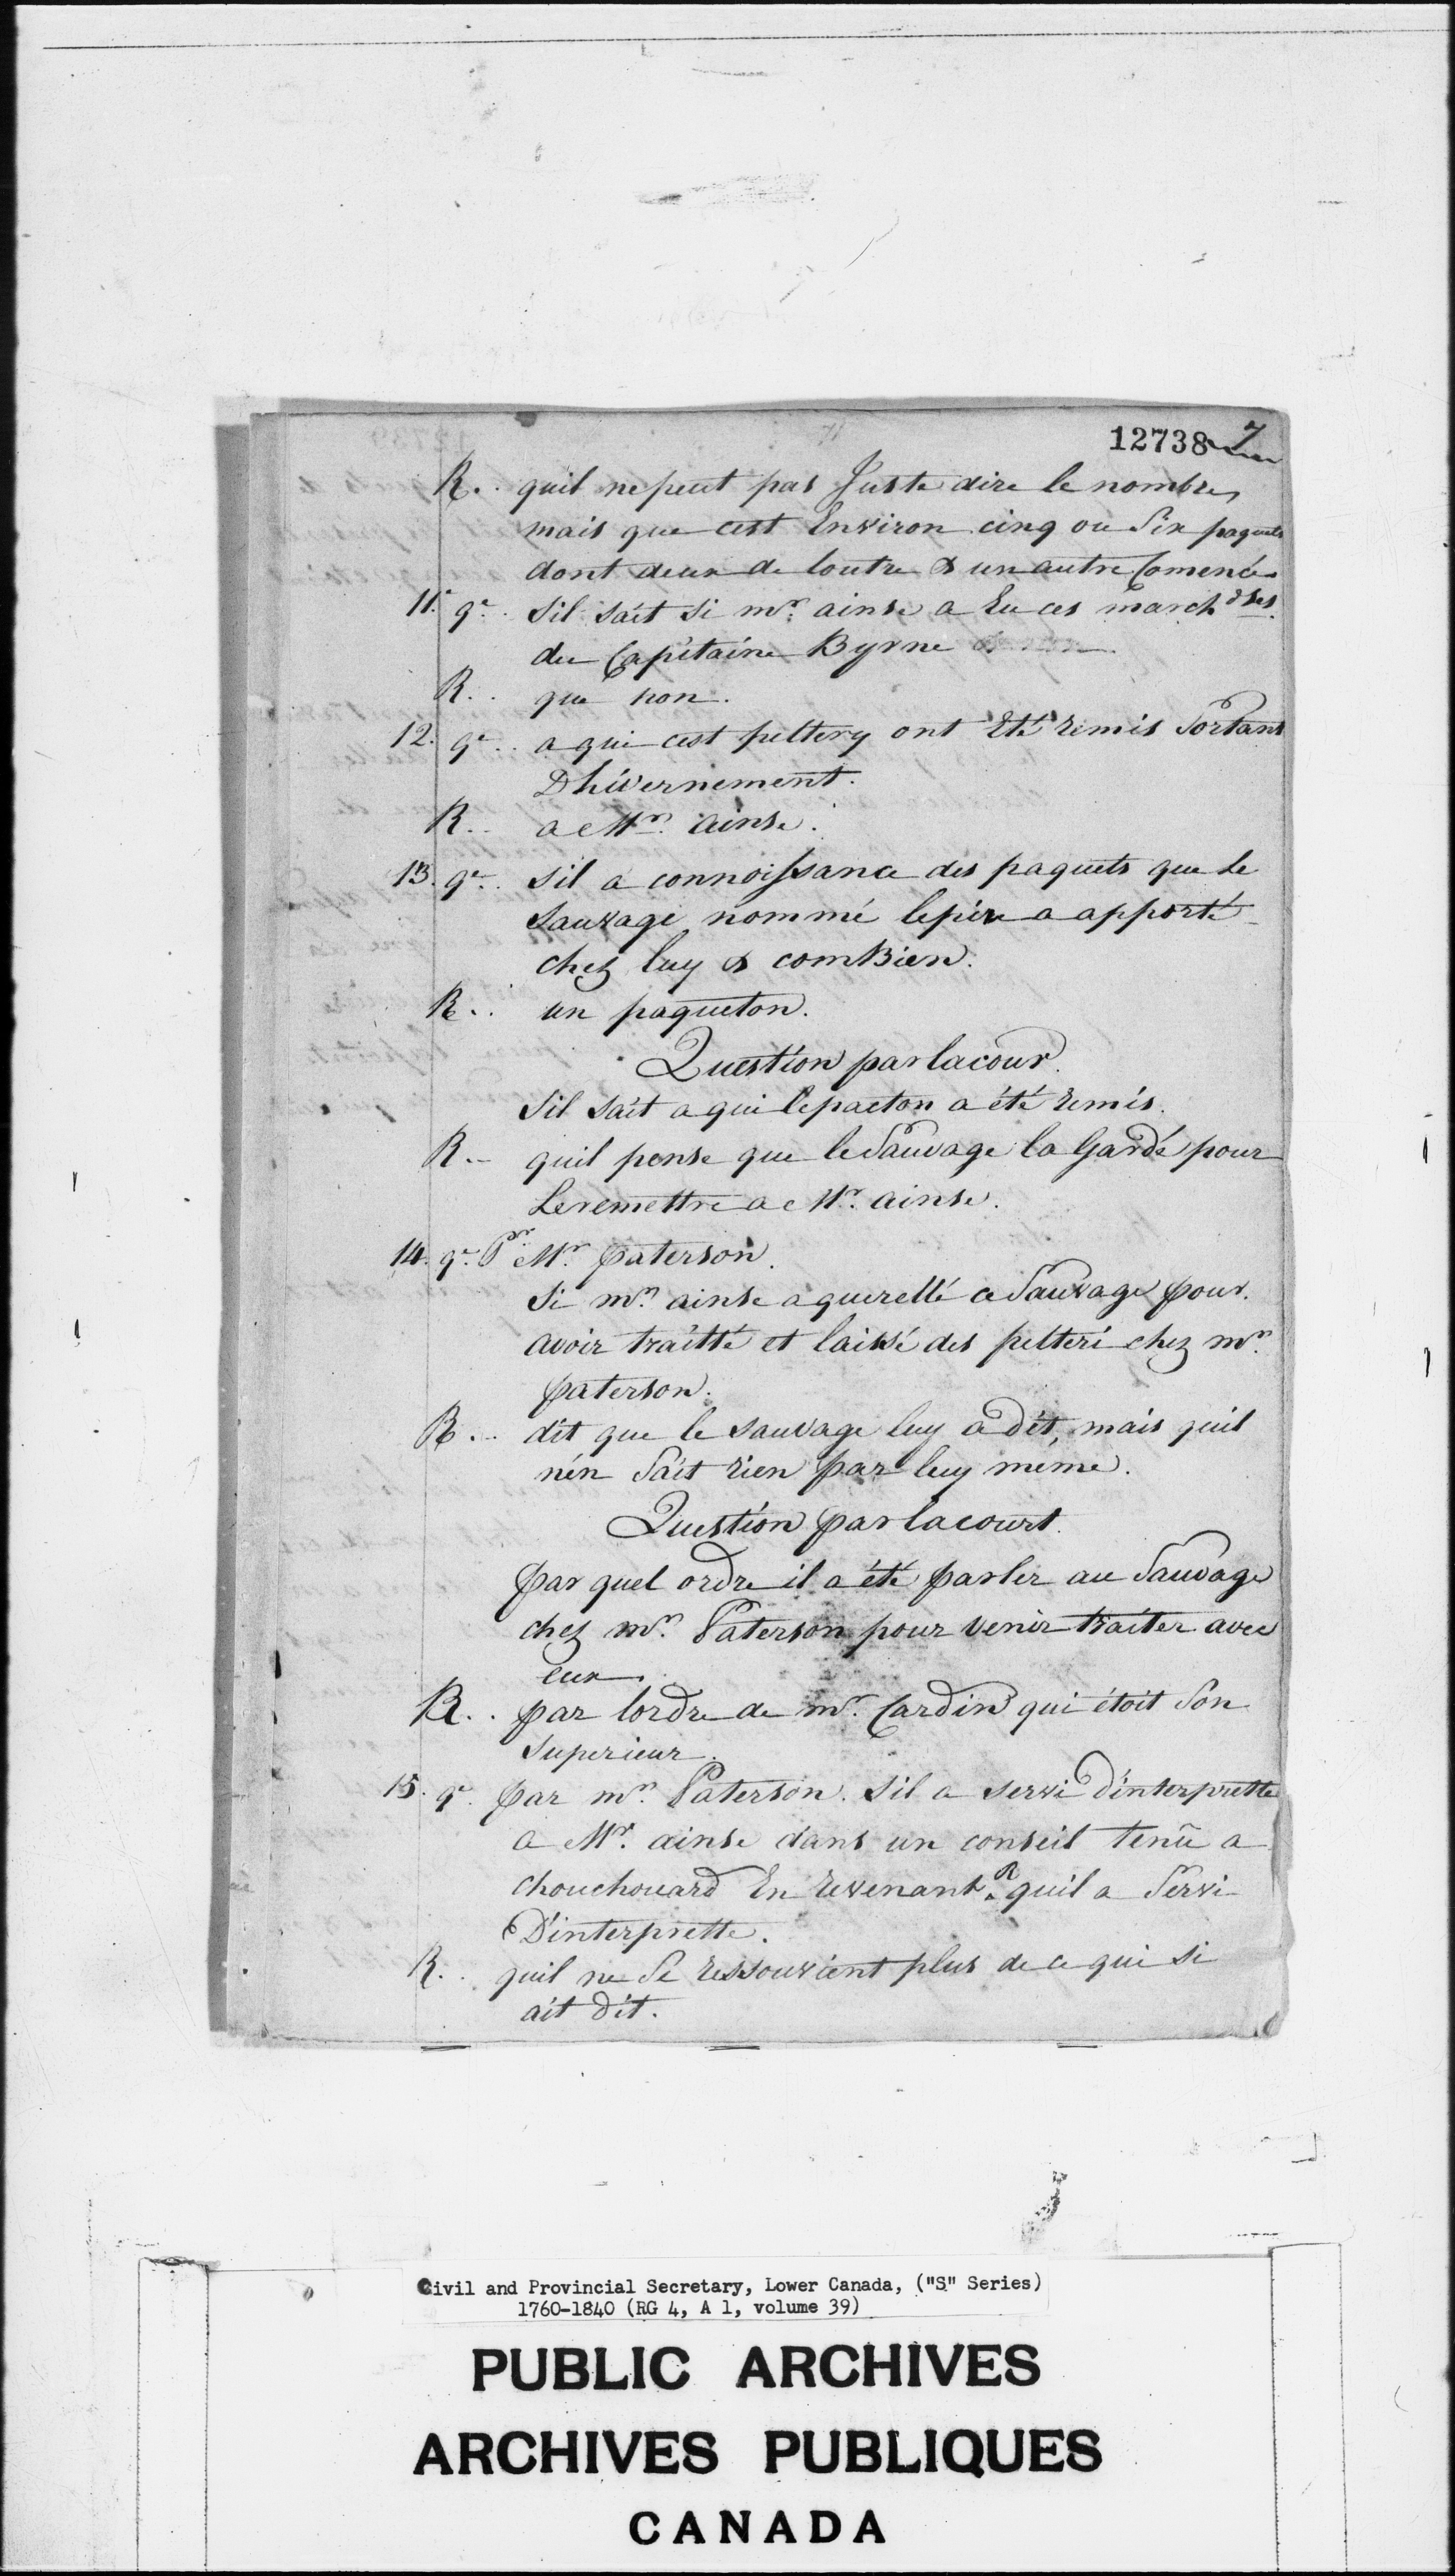 12738 7
R.. quil ne peut pas Juste dire le nombre
mais que cest Environ cinq ou Six paquets
dont deux de loutre & un autre Comencé
11.e qe. Sil sait Si mr. ainse a Eu ces marchdses.
du Capitaine Byrne
R.. que non.
12. qe.. a qui cest peltery ont Eté remis Sortant
D hivernement.
R.. a Mr. ainse.
13. qe.. Sil a connoissance des paquets que Le
Sauvage nommé lepere a apporté
chez luy & comBien.
R.. un paqueton.
Question par lacour.
Sil sait a qui lepacton a été remis.
R.- quil pense que le Sauvage la Gardé pour
Leremettre a Mr. ainse.
14. qe. Pr Mr. paterson.
Si mr. ainse a querellé ce Sauvage pour
avoir traitté et laissé des pelteri chez mr.
paterson.
R.. dit que le sauvage luy a dit, mais quil
nén Sait rien par luy meme.
Question par lacourt.
par quel ordre il a été parler au Sauvage
chez mr. Paterson pour venir traiter avec
eux.
R.. par lordre de mr. Cardin qui étoit Son
Superieur.
15. qe. par mr. Paterson. Sil a servi d'interprette
a Mr. ainse dans un conseil tenû a
chouchouard En revenant. R quil a Servi
D'interprette.
R.. quil ne Se ressouvient plus de ce qui si
ait dit.
Civil and Provincial Secretary, Lower Canada, ("S" Series)
1760-1840 (RG 4, A 1, volume 39)
PUBLIC ARCHIVES
ARCHIVES PUBLIQUES
CANADA